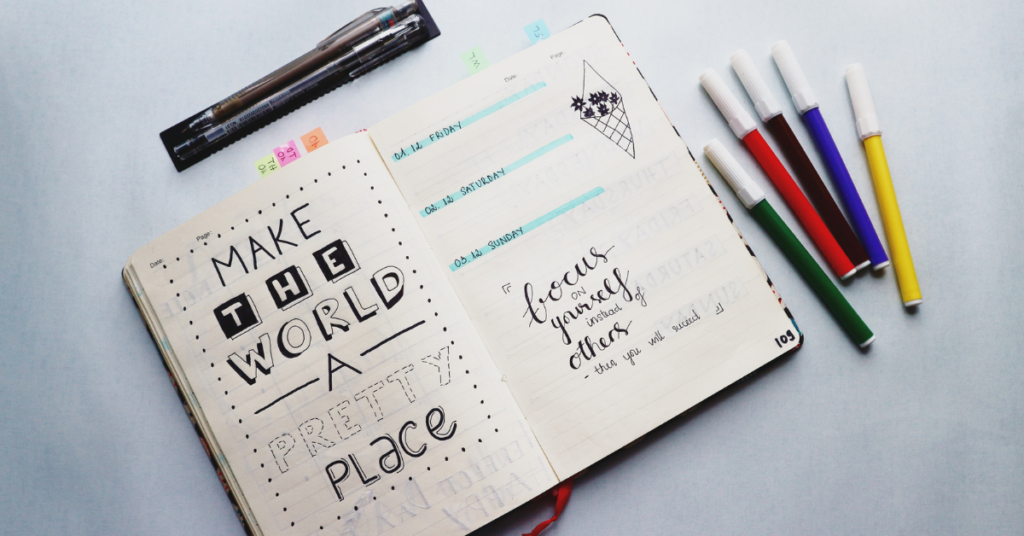 Date:
Page:
MAKE
THE
WORLD
A
PRETTY
PLACE
Date:
Page:
01. 12 FRIDAY
02. 12 SATURDAY
03. 12 SUNDAY
focus
ON
yourself
instead of
others
- then you will succeed
109